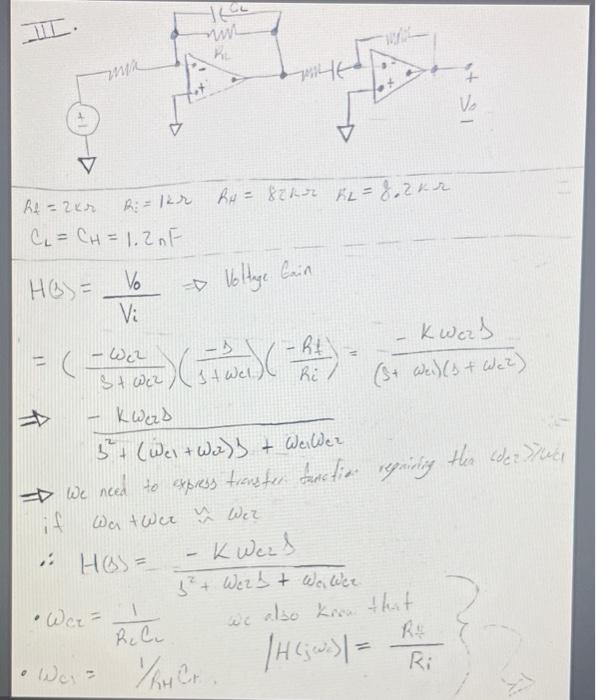 III.
CL
RL
+
-
+
-
+
+
Vo
-
Rf = 2kΩ Ri = 1kΩ RH = 82kΩ RL = 8.2kΩ
CL = CH = 1.2nF
H(s) = Vo / Vi ⇒ Voltage Gain
= (-ωc2 / s + ωc2) (-s / s + ωc1) (-Rf / Ri) = -Kωc2s / (s + ωc1)(s + ωc2)
⇒ -Kωc2s / s² + (ωc1 + ωc2)s + ωc1ωc2
⇒ We need to express transfer function requiring then ωc2 >> ωc1
if ωc1 + ωc2 ≈ ωc2
∴ H(s) = -Kωc2s / s² + ωc2s + ωc1ωc2
• ωc2 = 1 / RLCL we also know that
|H(jωo)| = Rf / Ri
• ωc1 = 1/RHCH.